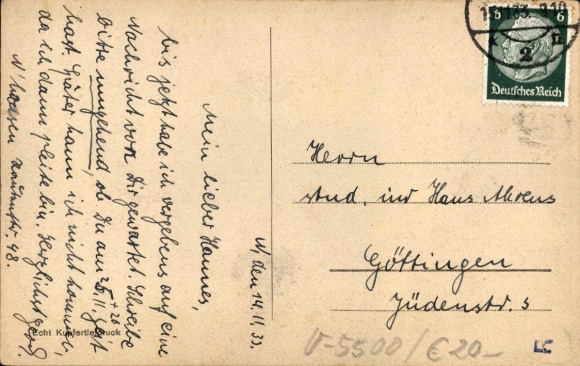 Mein lieber Hannes,
bis jetzt habe ich vergebens auf eine
Nachricht von Dir gewartet. Schreibe
bitte umgehend, ob Du am 25. + 26.
11. Zeit
hast. Später kann ich nicht kommen,
da ich dann pleite bin. Herzlichst
48.
N/ den 14.11.33.
Herrn
stud. iur Hans Ahrens
Göttingen
Jüdenstr. 3
Echt Kupfertiefdruck
6
Deutsches Reich
2
V-5500/€20-